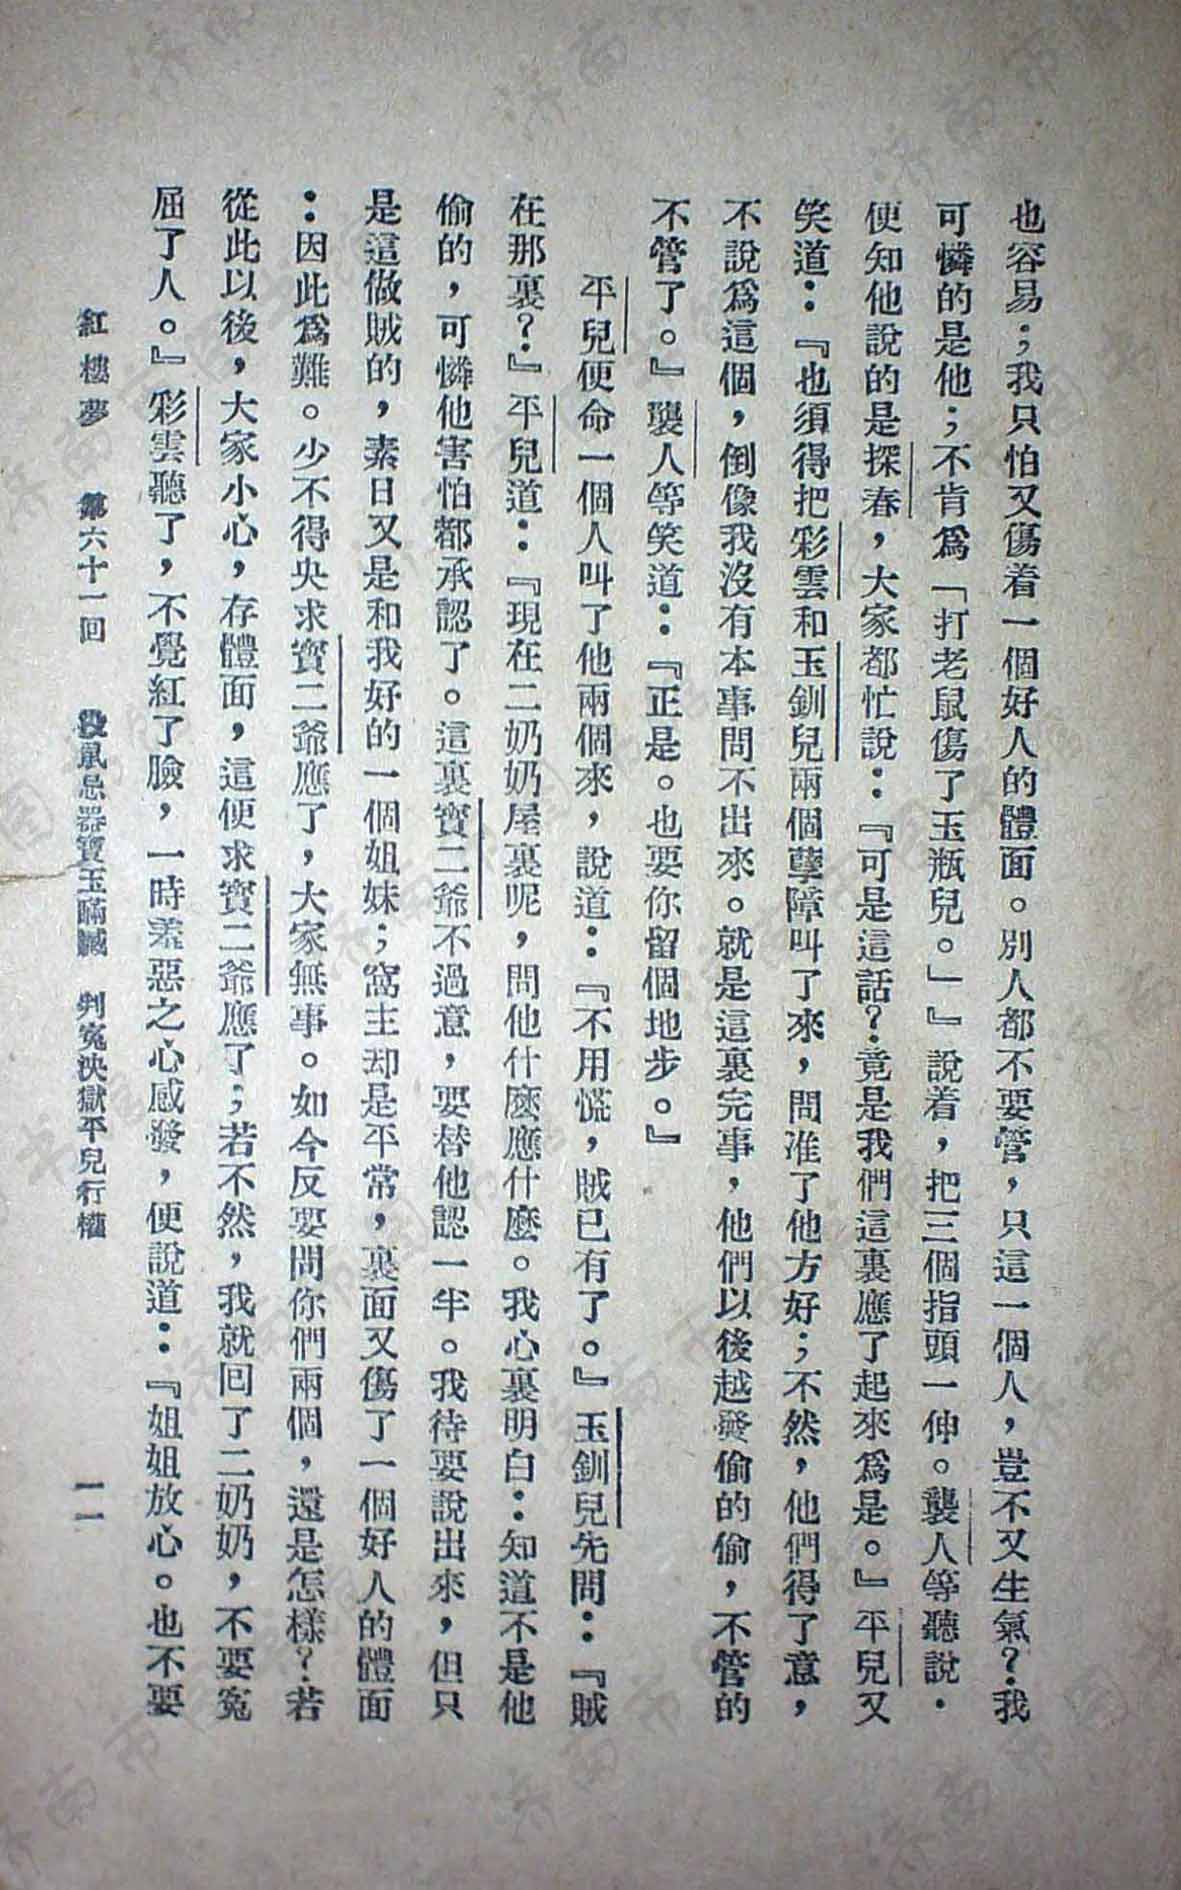 也容易；我只怕又傷着一個好人的體面。別人都不要管，只這一個人，豈不又生氣？我
可憐的是他；不肯爲「打老鼠傷了玉瓶兒。」』說着，把三個指頭一伸。襲人等聽說，
便知他說的是探春，大家都忙說：『可是這話？竟是我們這裏應了起來爲是。』平兒又
笑道：『也須得把彩雲和玉釧兒兩個孽障叫了來，問准了他方好；不然，他們得了意，
不說爲這個，倒像我沒有本事問不出來。就是這裏完事，他們以後越發偷的偷，不管的
不管了。』襲人等笑道：『正是。也要你留個地步。』
平兒便命一個人叫了他兩個來，說道：『不用慌，賊已有了。』玉釧兒先問：『賊
在那裏？』平兒道：『現在二奶奶屋裏呢，問他什麼應什麼。我心裏明白：知道不是他
偷的，可憐他害怕都承認了。這裏寶二爺不過意，要替他認一半。我待要說出來，但只
是這做賊的，素日又是和我好的一個姐妹；窩主却是平常，裏面又傷了一個好人的體面
：因此爲難。少不得央求寶二爺應了，大家無事。如今反要問你們兩個，還是怎樣？若
從此以後，大家小心，存體面，這便求寶二爺應了；若不然，我就回了二奶奶，不要寃
屈了人。』彩雲聽了，不覺紅了臉，一時羞惡之心感發，便說道：『姐姐放心。也不要
紅樓夢 第六十一回 投鼠忌器寶玉瞞贓 判寃決獄平兒行權 一一